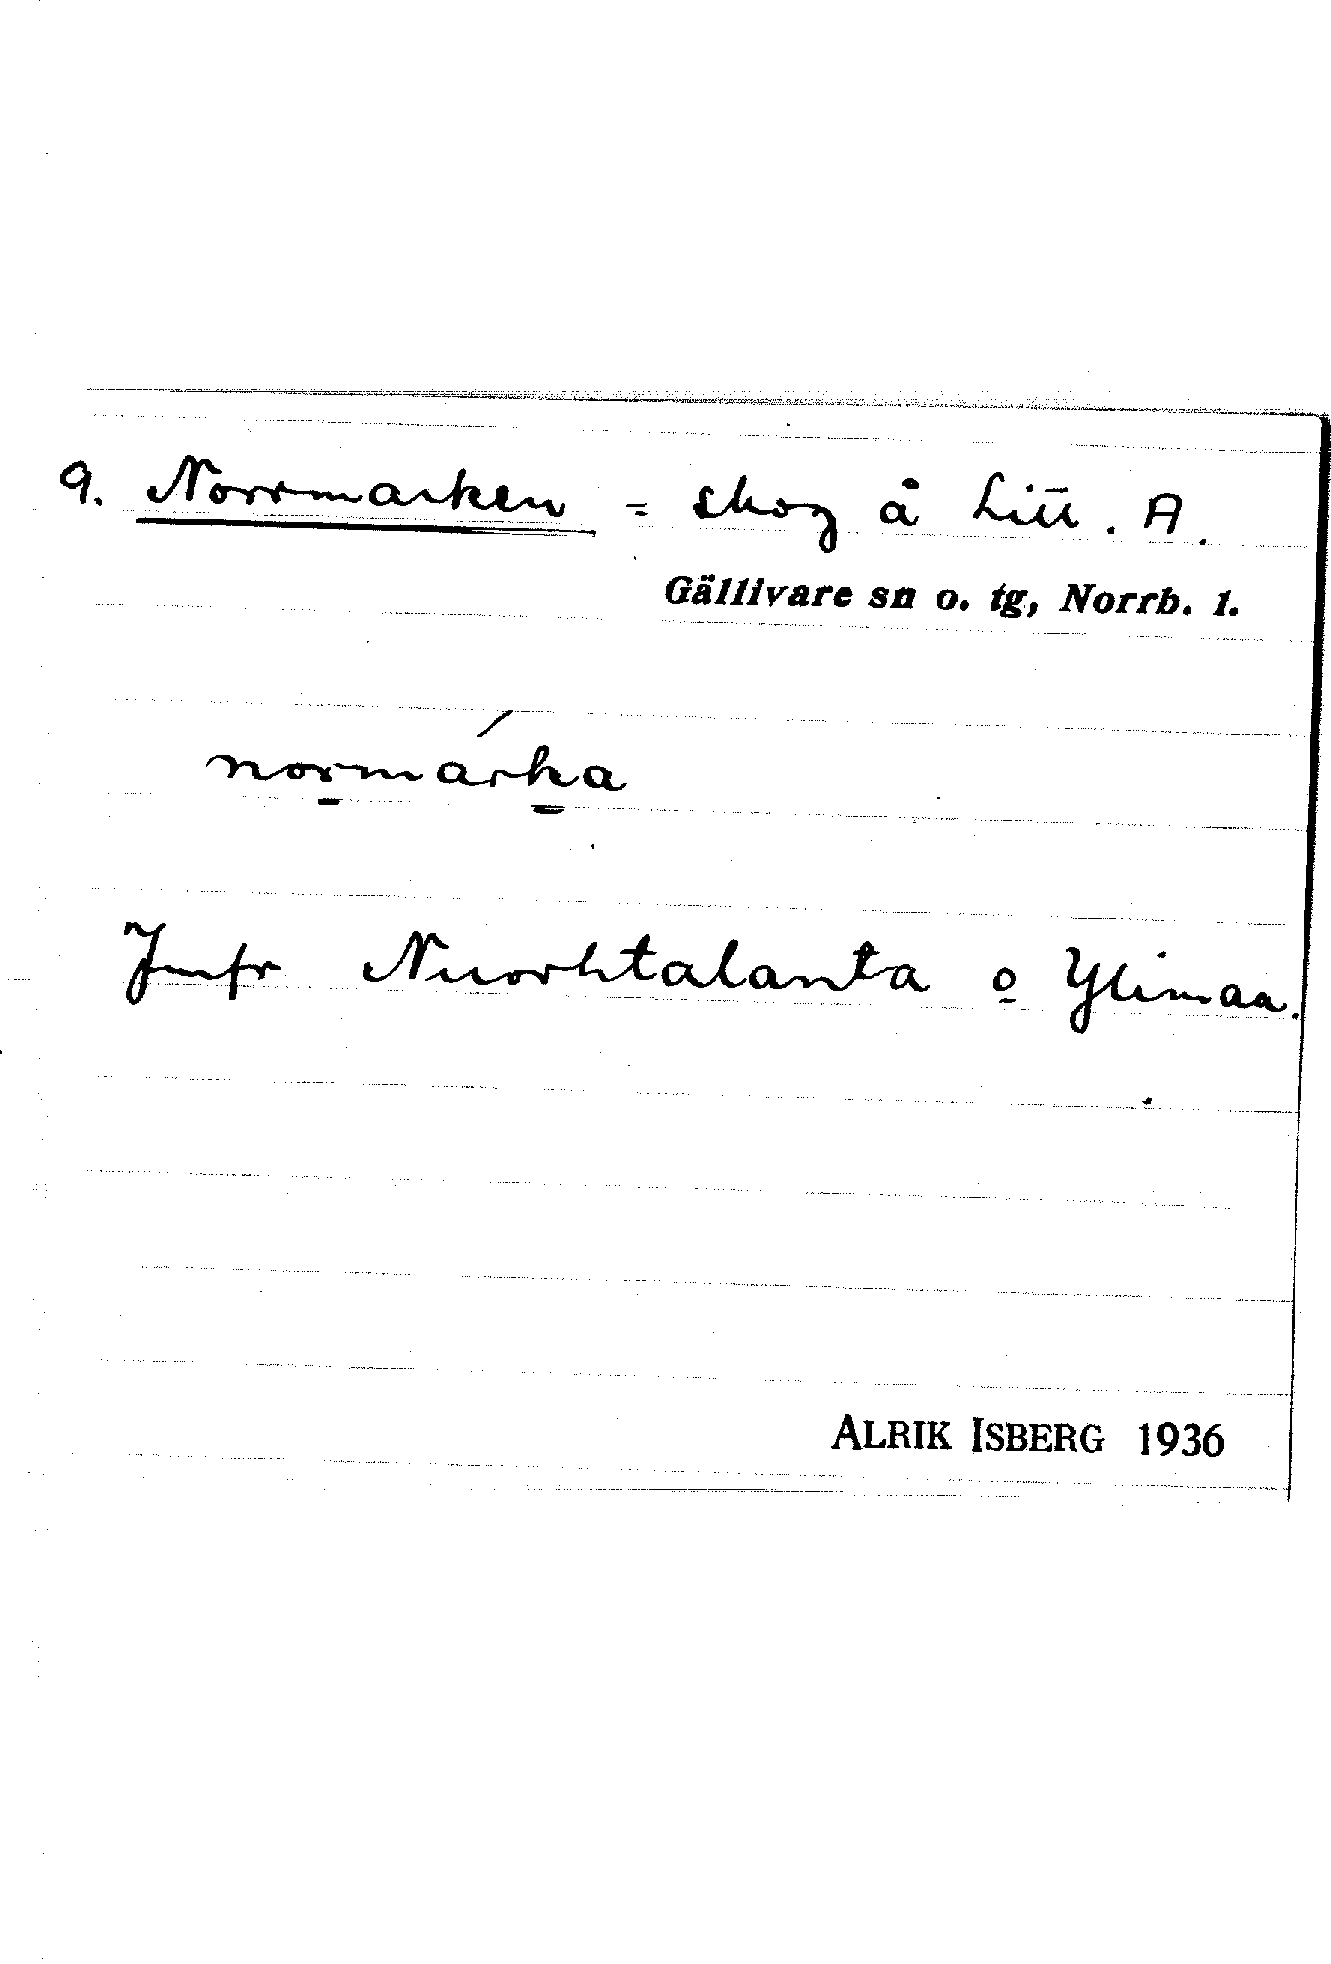 9. Norrmarken = skog å Litt. A.
Gällivare sn o. tg, Norrb. l.
normárka
Jmfr Nuorktalanta o Ylimaa.
ALRIK ISBERG 1936